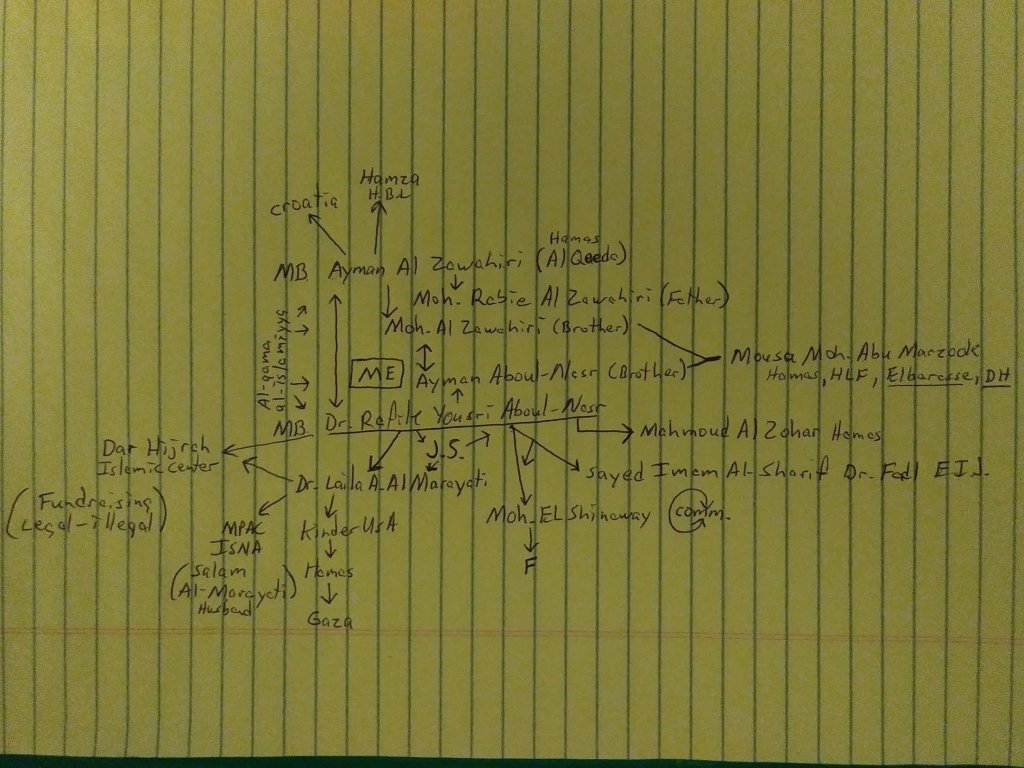 Hamza
H.B.L
Croatia
Hamas
MB. Ayman Al Zawahiri (Al Qaeda)
Moh. Rabie Al Zawahiri (Father)
Al-gama
al-islamiyya
Moh. Al Zawahiri (Brother)
Mousa Moh. Abu Marzook
Hamas, HLF, Elbarasse, DH
ME
Ayman Aboul-Nasr (Brother)
MB. Dr. Rafik Yousri Aboul-Nasr
Mahmoud Al Zahar Hamas
Dar Hijrah
Islamic Center
J.S.
Sayed Imam Al-Sharif Dr. Fadl E.I.J.
Dr. Laila A. Al Marayati
(Fundraising
Legal-illegal)
Moh. EL Shinaway
comm.
MPAC
ISNA
Kinder USA
F
(Salam
Al-Marayati)
Husband
Hamas
Gaza